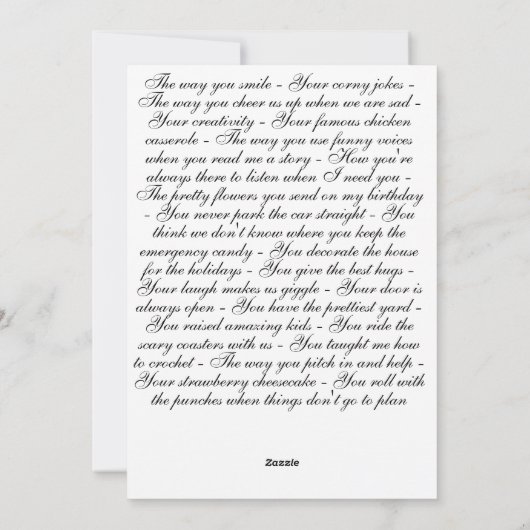 The way you smile - Your corny jokes -
The way you cheer us up when we are sad -
Your creativity - Your famous chicken
casserole - The way you use funny voices
when you read me a story - How you're
always there to listen when I need you -
The pretty flowers you send on my birthday
- You never park the car straight - You
think we don't know where you keep the
emergency candy - You decorate the house
for the holidays - You give the best hugs -
Your laugh makes us giggle - Your door is
always open - You have the prettiest yard -
You raised amazing kids - You ride the
scary coasters with us - You taught me how
to crochet - The way you pitch in and help -
Your strawberry cheesecake - You roll with
the punches when things don't go to plan
Zazzle